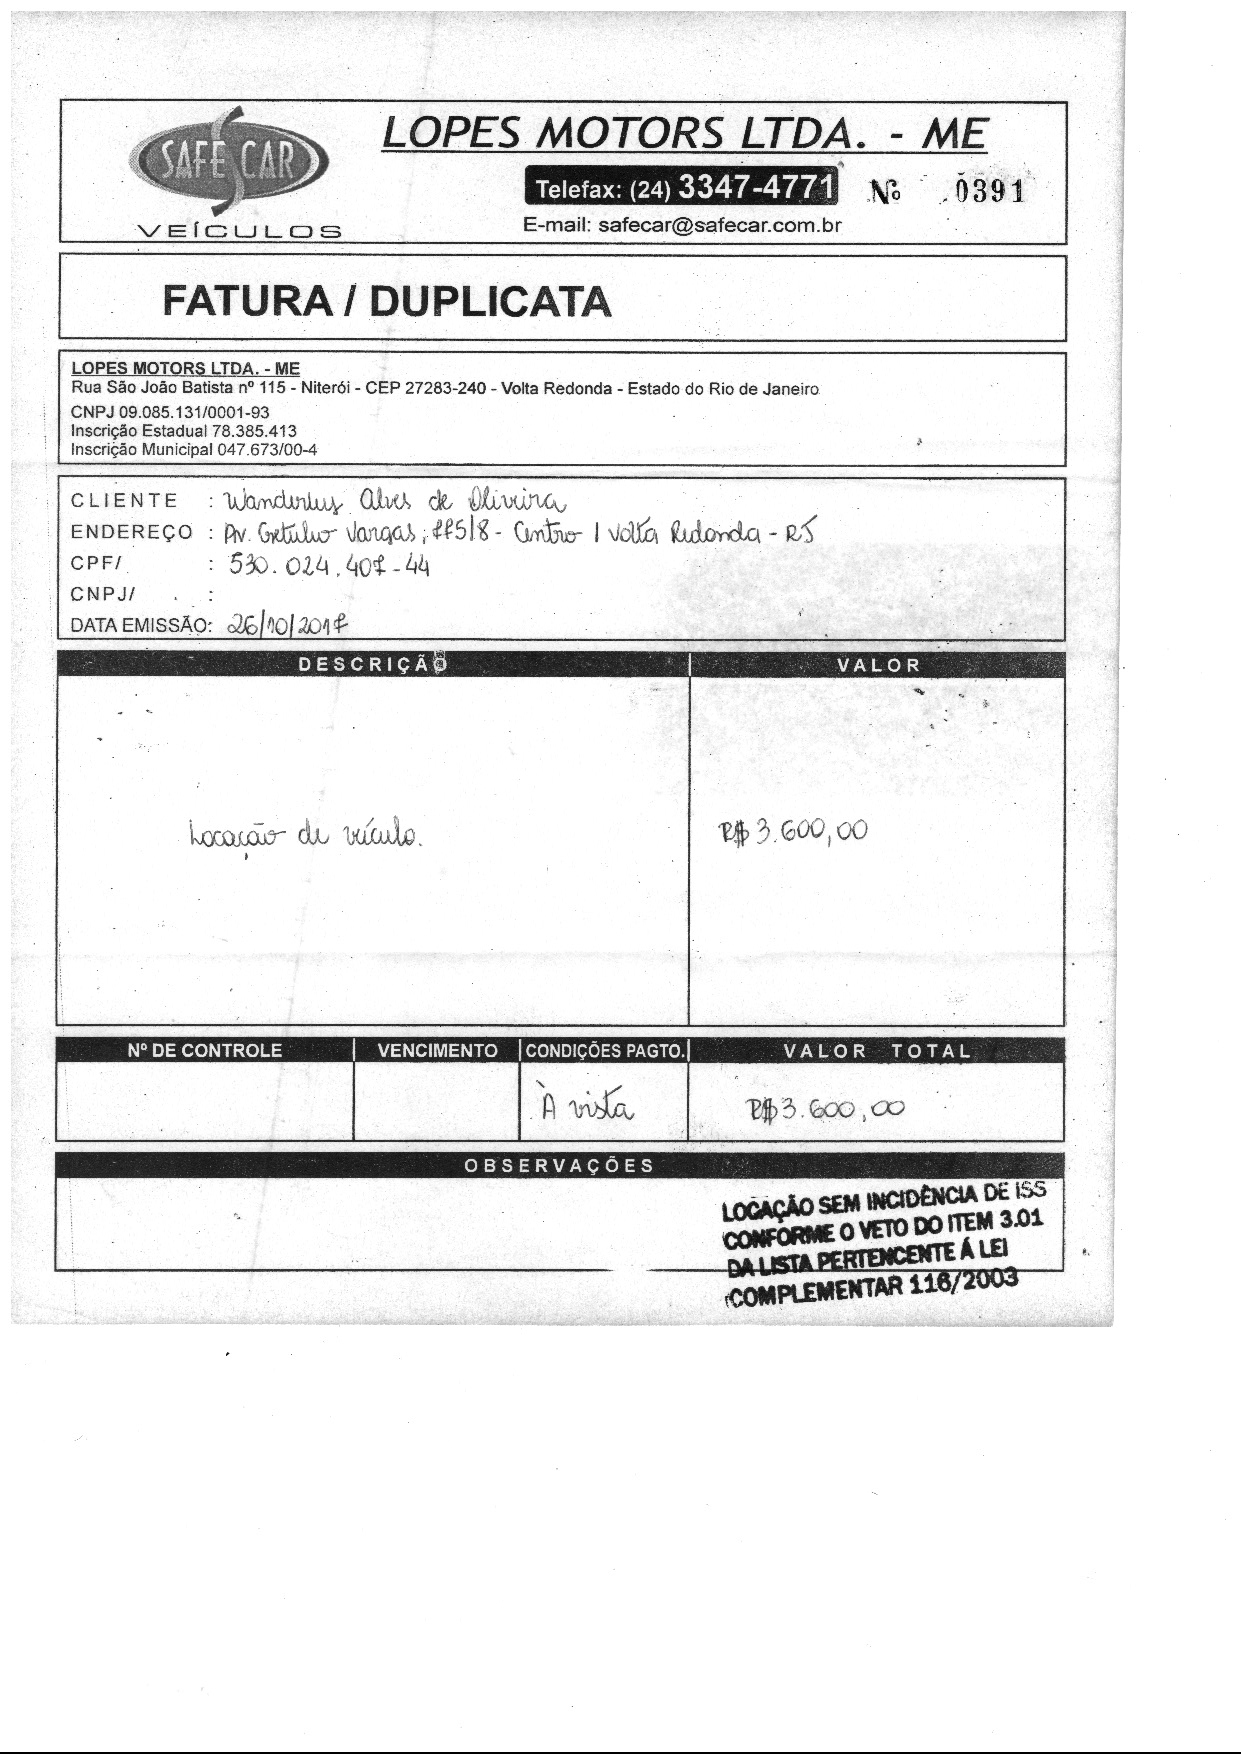 SAFE CAR
VEÍCULOS
LOPES MOTORS LTDA. - ME
Telefax: (24) 3347-4771 Nº 0391
E-mail: safecar@safecar.com.br
FATURA / DUPLICATA
LOPES MOTORS LTDA. - ME
Rua São João Batista nº 115 - Niterói - CEP 27283-240 - Volta Redonda - Estado do Rio de Janeiro
CNPJ 09.085.131/0001-93
Inscrição Estadual 78.385.413
Inscrição Municipal 047.673/00-4
CLIENTE : Wanderley Alves de Oliveira
ENDEREÇO : Av. Getulho Vargas, 775/8 - Centro / Volta Redonda - RJ
CPF/ : 530.024.407-44
CNPJ/ :
DATA EMISSÃO: 26/10/2017
DESCRIÇÃO VALOR
Locação de veículo. R$ 3.600,00
Nº DE CONTROLE VENCIMENTO CONDIÇÕES PAGTO. VALOR TOTAL
À vista R$ 3.600,00
OBSERVAÇÕES
LOCAÇÃO SEM INCIDÊNCIA DE ISS
CONFORME O VETO DO ITEM 3.01
DA LISTA PERTENCENTE Á LEI
COMPLEMENTAR 116/2003